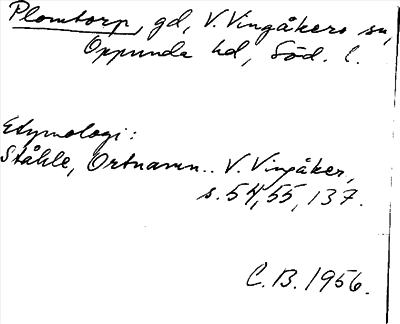 Plomtorp, gd, V. Vingåkers sn,
Oppunda hd, Söd. l.
Etymologi:
Ståhle, Ortnamn.. V. Vingåker,
s. 54, 55, 137.
C.B. 1956.